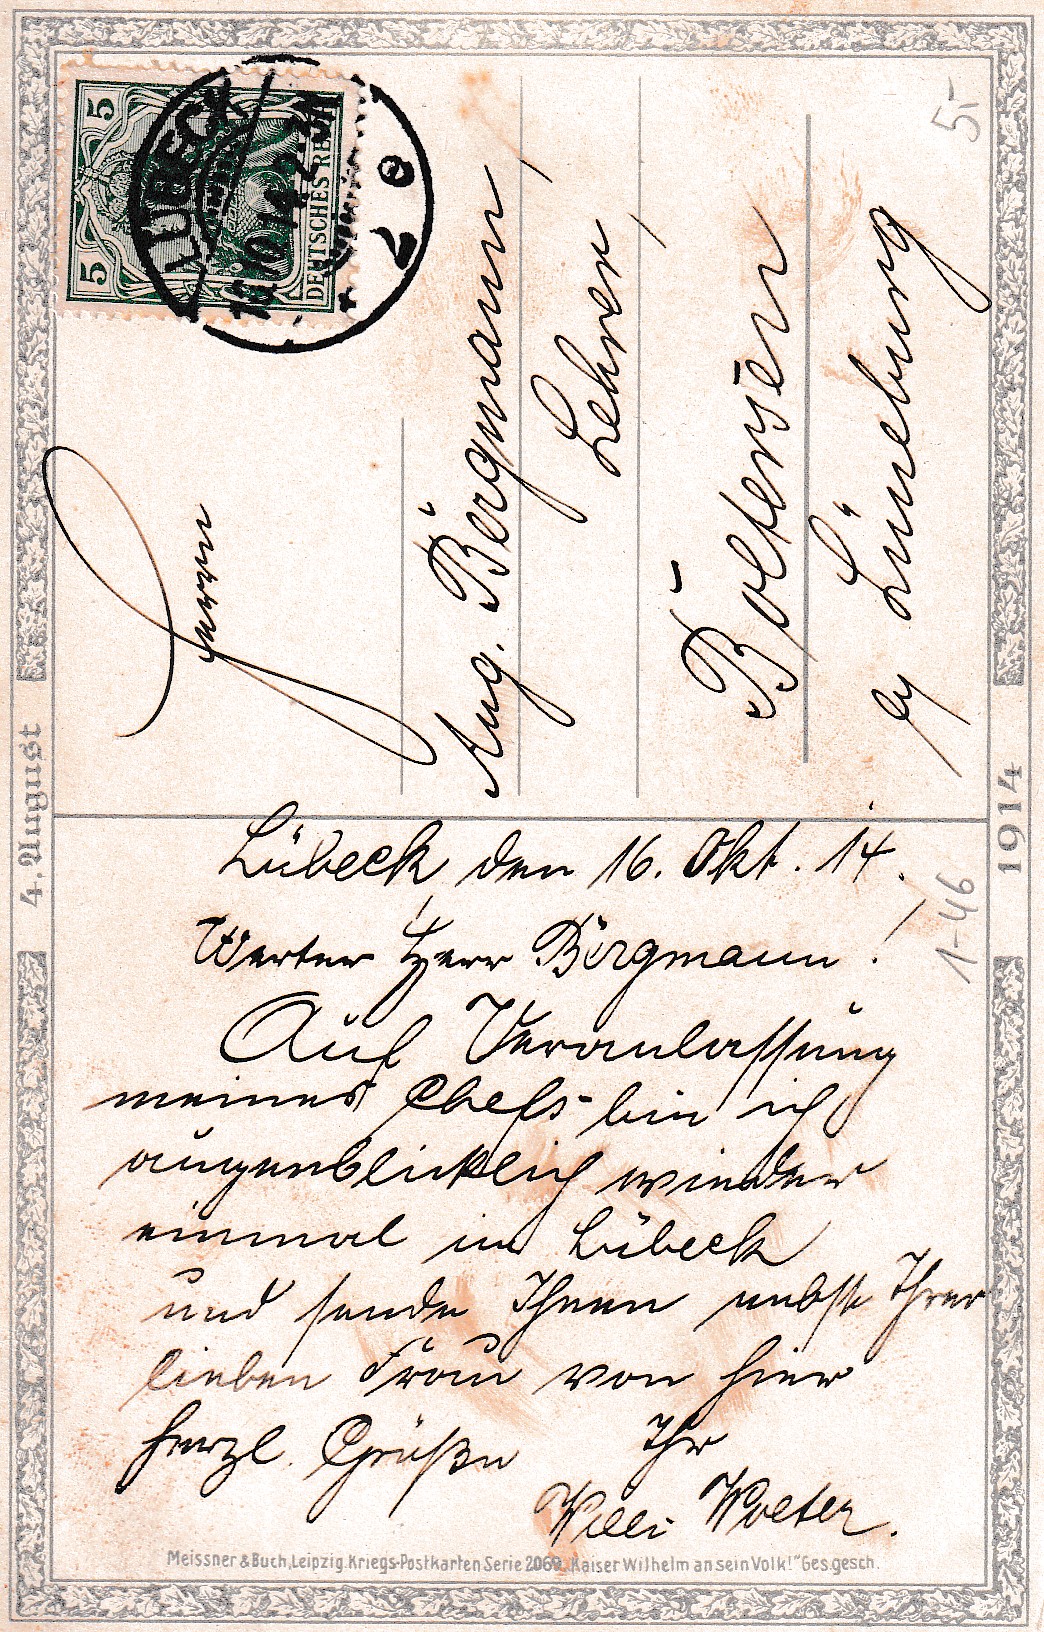 5
5
DEUTSCHES REICH
LÜBECK
2 e
Herrn
Aug. Bergmann,
Lehrer,
Boltersen
by Lüneburg
5.-
4. August
1914
1-46
Lübeck den 16. Okt. 14.
Werter Herr Bergmann!
Auf Veranlassung
meines Chefs bin ich
augenblicklich wieder
einmal in Lübeck
und sende Ihnen nebst Ihrer
lieben Frau von hier
herzl. Grüße Ihr
Willi Wolter.
Meissner & Buch, Leipzig. Kriegs-Postkarten Serie 2069. "Kaiser Wilhelm an sein Volk!" Ges. gesch.